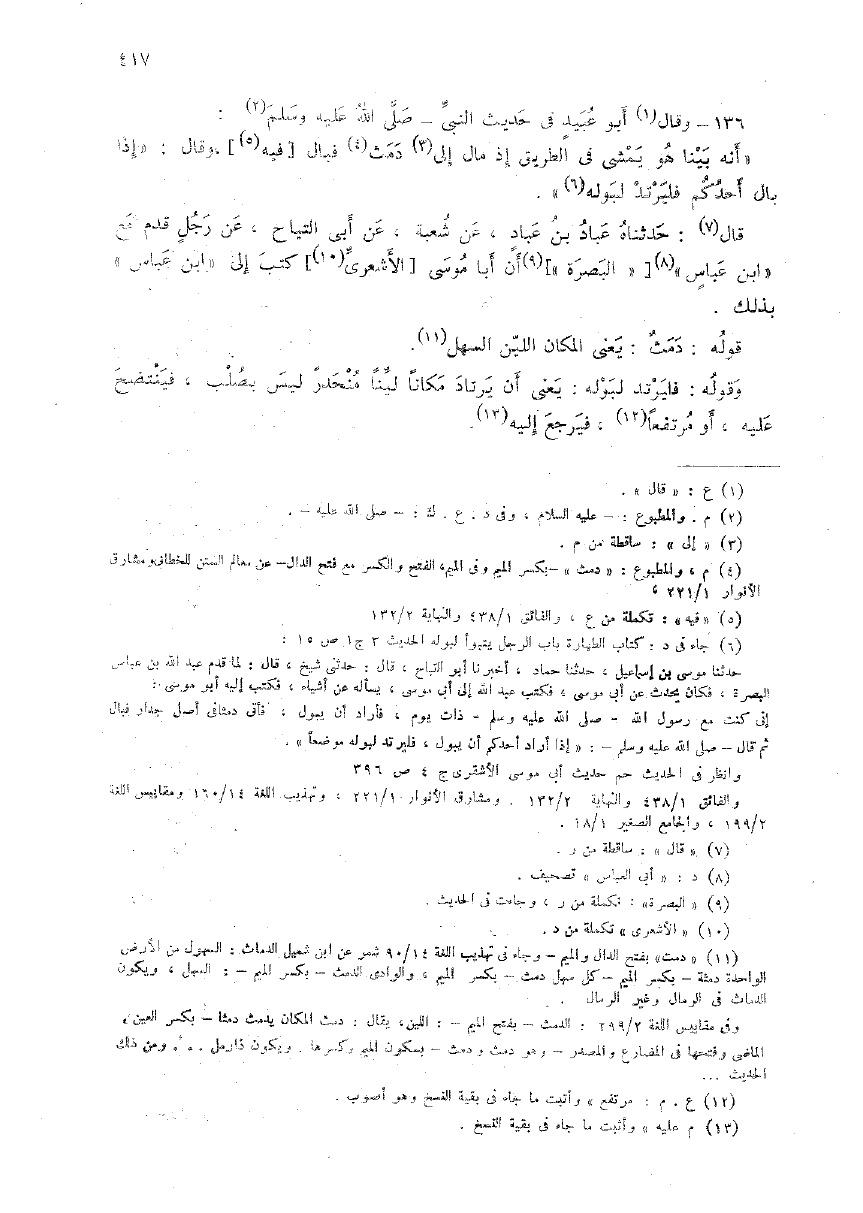 ٤١٧
١٣٦ – وقال(١) أبو عُبَيدٍ فى حَديث النبىِّ – صَلَّى اللهُ عَليه وسَلمَ(٢) :
« أَنه بَيْنا هُو يَمْشى فى الطريق إذ مال إلى(٣) دَمَث(٤) فبال [ فيه(٥) ] .وقال : « إذا
بال أَحدُكُم فليَرْتدْ لبَوله(٦) » .
قال(٧) : حَدثناهُ عَبادُ بنُ عَبادٍ ، عَن شُعبة ، عَن أَبى التياح ، عَن رَجُلٍ قدم مَع
« ابن عَباسٍ »(٨) [ « البَصرَة » ](٩) أَن أَبا مُوسَى [ الأَشعرىَّ(١٠) ] كتبَ إلىَ « ابن عَباس »
بذلك .
قولُه : دَمَثٌ : يَعنى المكان الليّن السهل(١١) .
وَقولُه : فليَرْتد لبَوْله : يَعنى أَن يَرتادَ مَكاناً ليِّناً مُنْحَدرً ليسَ بصُلْب ، فيَنْتضحَ
عَليه ، أَو مُرتفعاً(١٢) ، فيَرجعَ إليه(١٣) .
(١) ع : « قال » .
(٢) م . والمطبوع : – عليه السلام ، وفى د . ع . ك : – صلى الله عليه – .
(٣) « إلى » : ساقطة من م .
(٤) م ، والمطبوع : « دمث » –بكسر الميم وفى الميم، الفتح والكسر مع فتح الدال– عن معالم السنن للخطابى ومشارق
الأنوار ٢٢١/١ ،
(٥) « فيه » : تكملة من ع ، والفائق ٤٣٨/١ والنهاية ١٣٢/٢
(٦) جاء فى د : كتاب الطهارة باب الرجل يتبوأ لبوله الحديث ٣ ج١ ص ١٥ :
حدثنا موسى بن إسماعيل ، حدثنا حماد ، أخبرنا أبو التياح ، قال : حدثنى شيخ ، قال : لما قدم عبد الله بن عباس
البصرة ، فكان يحدث عن أبى موسى ، فكتب عبد الله إلى أبى موسى ، يسأله عن أشياء ، فكتب إليه أبو موسى :
إنى كنت مع رسول الله – صلى الله عليه وسلم – ذات يوم ، فأراد أن يبول ، فأتى دمثافى أصل جدار فبال
ثم قال – صلى الله عليه وسلم – : « إذا أراد أحدكم أن يبول ، فليرتد لبوله موضعاً » .
وانظر فى الحديث حم حديث أبى موسى الأشقرى ج ٤ ص ٣٩٦
والفائق ٤٣٨/١ والنهاية ١٣٢/٢ . ومشارق الأنوار ٢٢١/١ ، وتهذيب اللغة ١٦٠/١٤ ومقاييس اللغة
١٩٩/٢ ، والجامع الصغير ١٨/١ .
(٧) « قال » : ساقطة من ر .
(٨) د : « أبى العباس » تصحيف .
(٩) « البصرة» : تكملة من ر ، وجاءت فى الحديث .
(١٠) « الأشعرى » تكملة من د .
(١١) « دمث» بفتح الدال والميم – وجاء فى تهذيب اللغة ٩٠/١٤ شمر عن ابن شميل الدماث : السهول من الأرض
الواحدة دمثة – بكسر الميم –كل سهل دمث – بكسر الميم ، والوادى الدمث – بكسر الميم – : السهل ، ويكون
الدماث فى الرمال وغير الرمال .
وفى مقاييس اللغة ٢٩٩/٢ : الدمث – بفتح الميم – : اللين، يقال : دمث المكان يدمث دمثا – بكسر العين فى
الماضى وفتحها فى المضارع والمصدر – وهو دمث ودمث – بسكون الميم وكسرها . ويكون ذا رمل . . . ومن ذلك
الحديث ...
(١٢) ع . م : مرتفع » وأثبت ما جاء فى بقية النسخ وهو أصوب .
(١٣) م عليه » وأثبت ما جاء فى بقية النسخ .